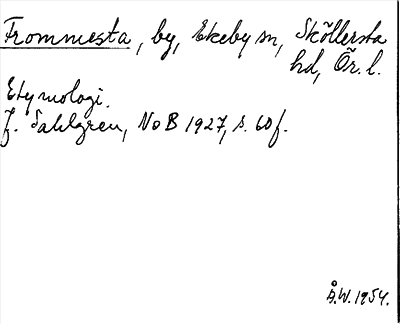 Frommesta, by, Ekeby sn, Sköllersta
hd, Ör. l.
Etymologi.
J. Sahlgren, NoB 1927, s. 60 f.
Å.W. 1954.